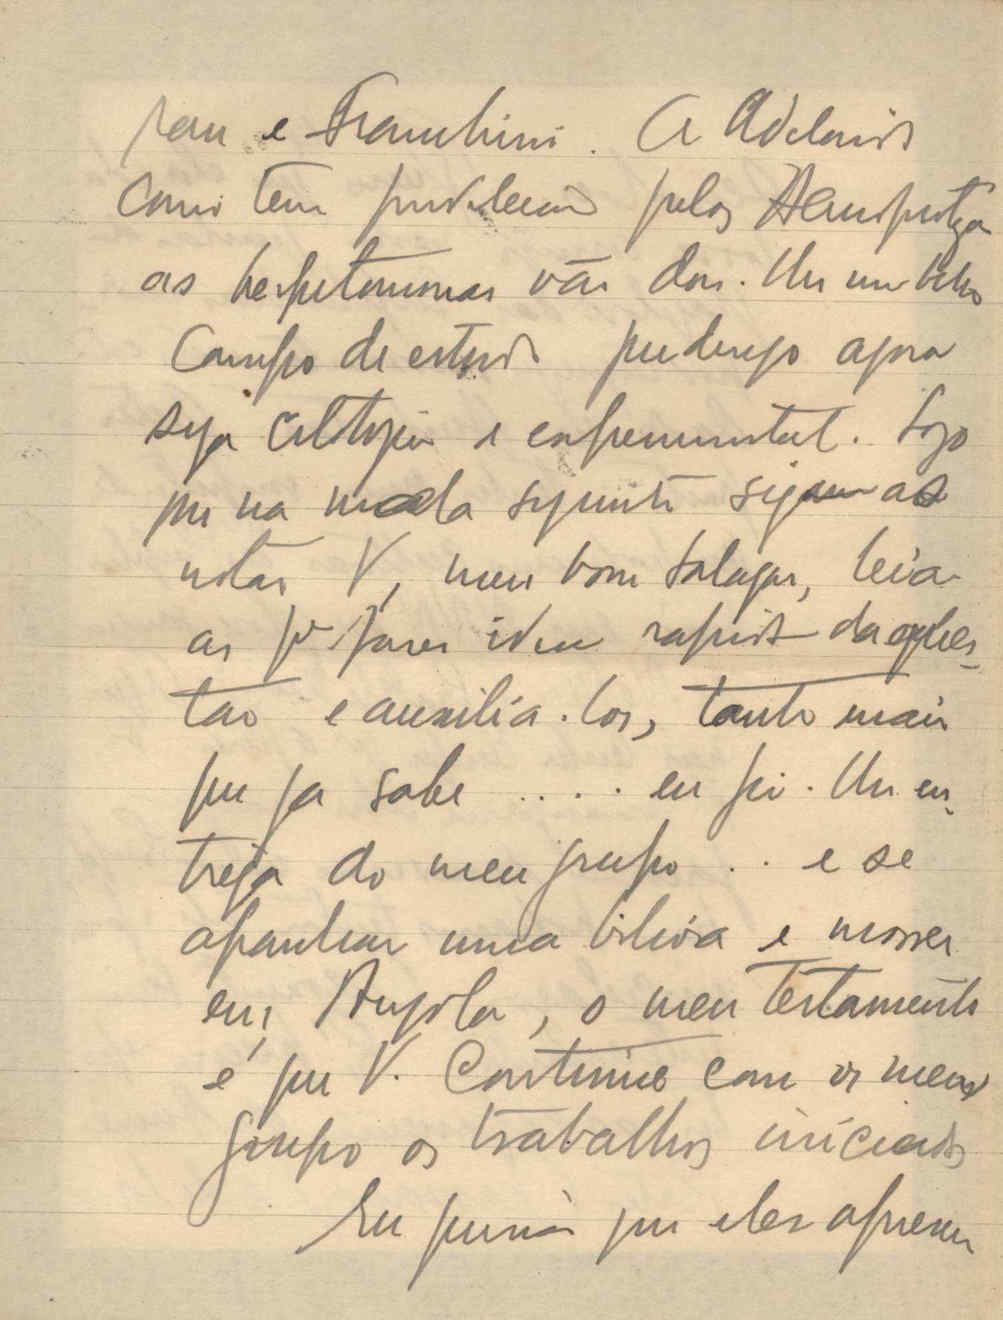 ran e Franchini. A Adelaide
como tem predileção pelos
as herpetomonas vão dar. Um belo
Campo de estudo
seja citologia e experimental. Logo
que na mala seguinte sigam as
notas V, meu bom Salazar, leia
as pª fazer idea rapida da ques-
tão e auxilia-los, tanto mais
que ja sabe .... eu fiz. Um en-
trega do meu grupo .. e se
apanhar uma biliosa e morrer
em Angola, o meu testamento
é que V. Continue com o meu
grupo os trabalhos iniciados
Eu queria que eles